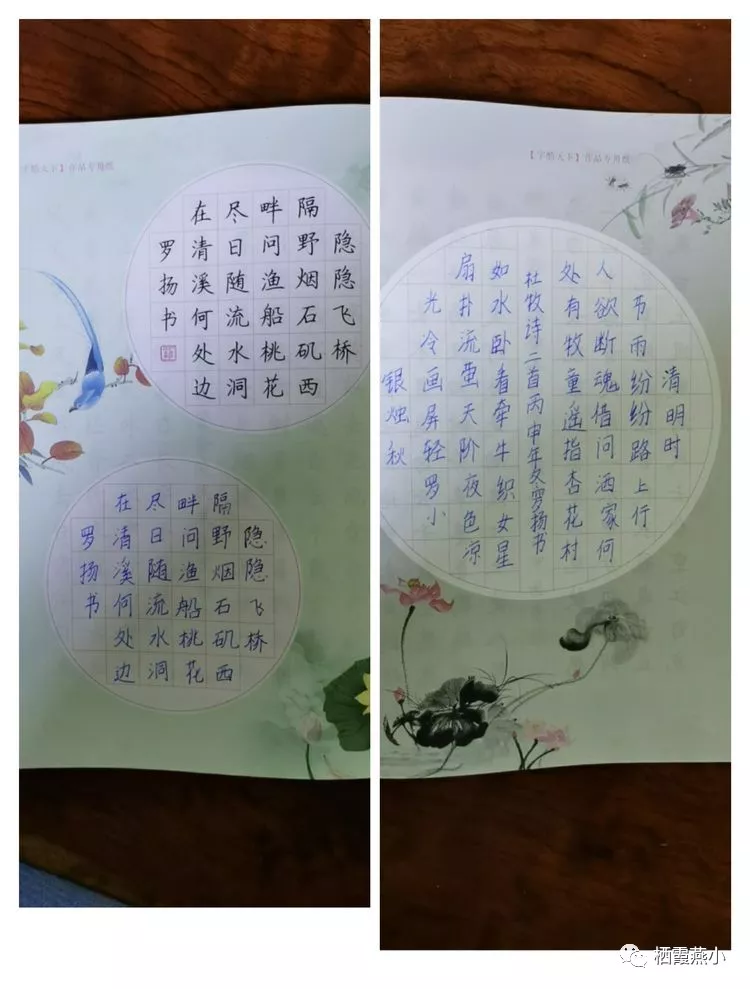 字酷天下】作品专用纸
隐隐飞桥
隔野烟石矶西
畔问渔船桃花
尽日随流水洞
在清溪何处边
罗扬书
隐隐飞桥
隔野烟石矶西
畔问渔船桃花
尽日随流水洞
在清溪何处边
罗扬书
【字酷天下】作品专用纸
清明时
节雨纷纷路上行
人欲断魂借问酒家何
处有牧童遥指杏花村
杜牧诗二首丙申年夏罗扬书
如水卧看牵牛织女星
扇扑流萤天阶夜色凉
光冷画屏轻罗小
银烛秋
栖霞燕小